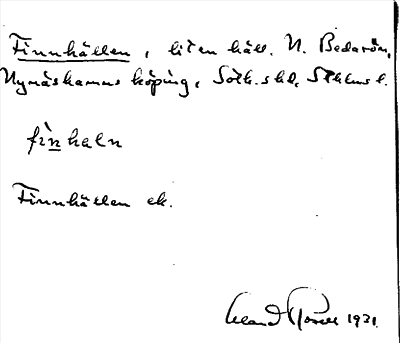 Finnhällen, liten häll. N. Bedarön,
Nynäshamns köping, Söt. skd, Sthlms l.
fìnhaln
Finnhällen ek.
1931.